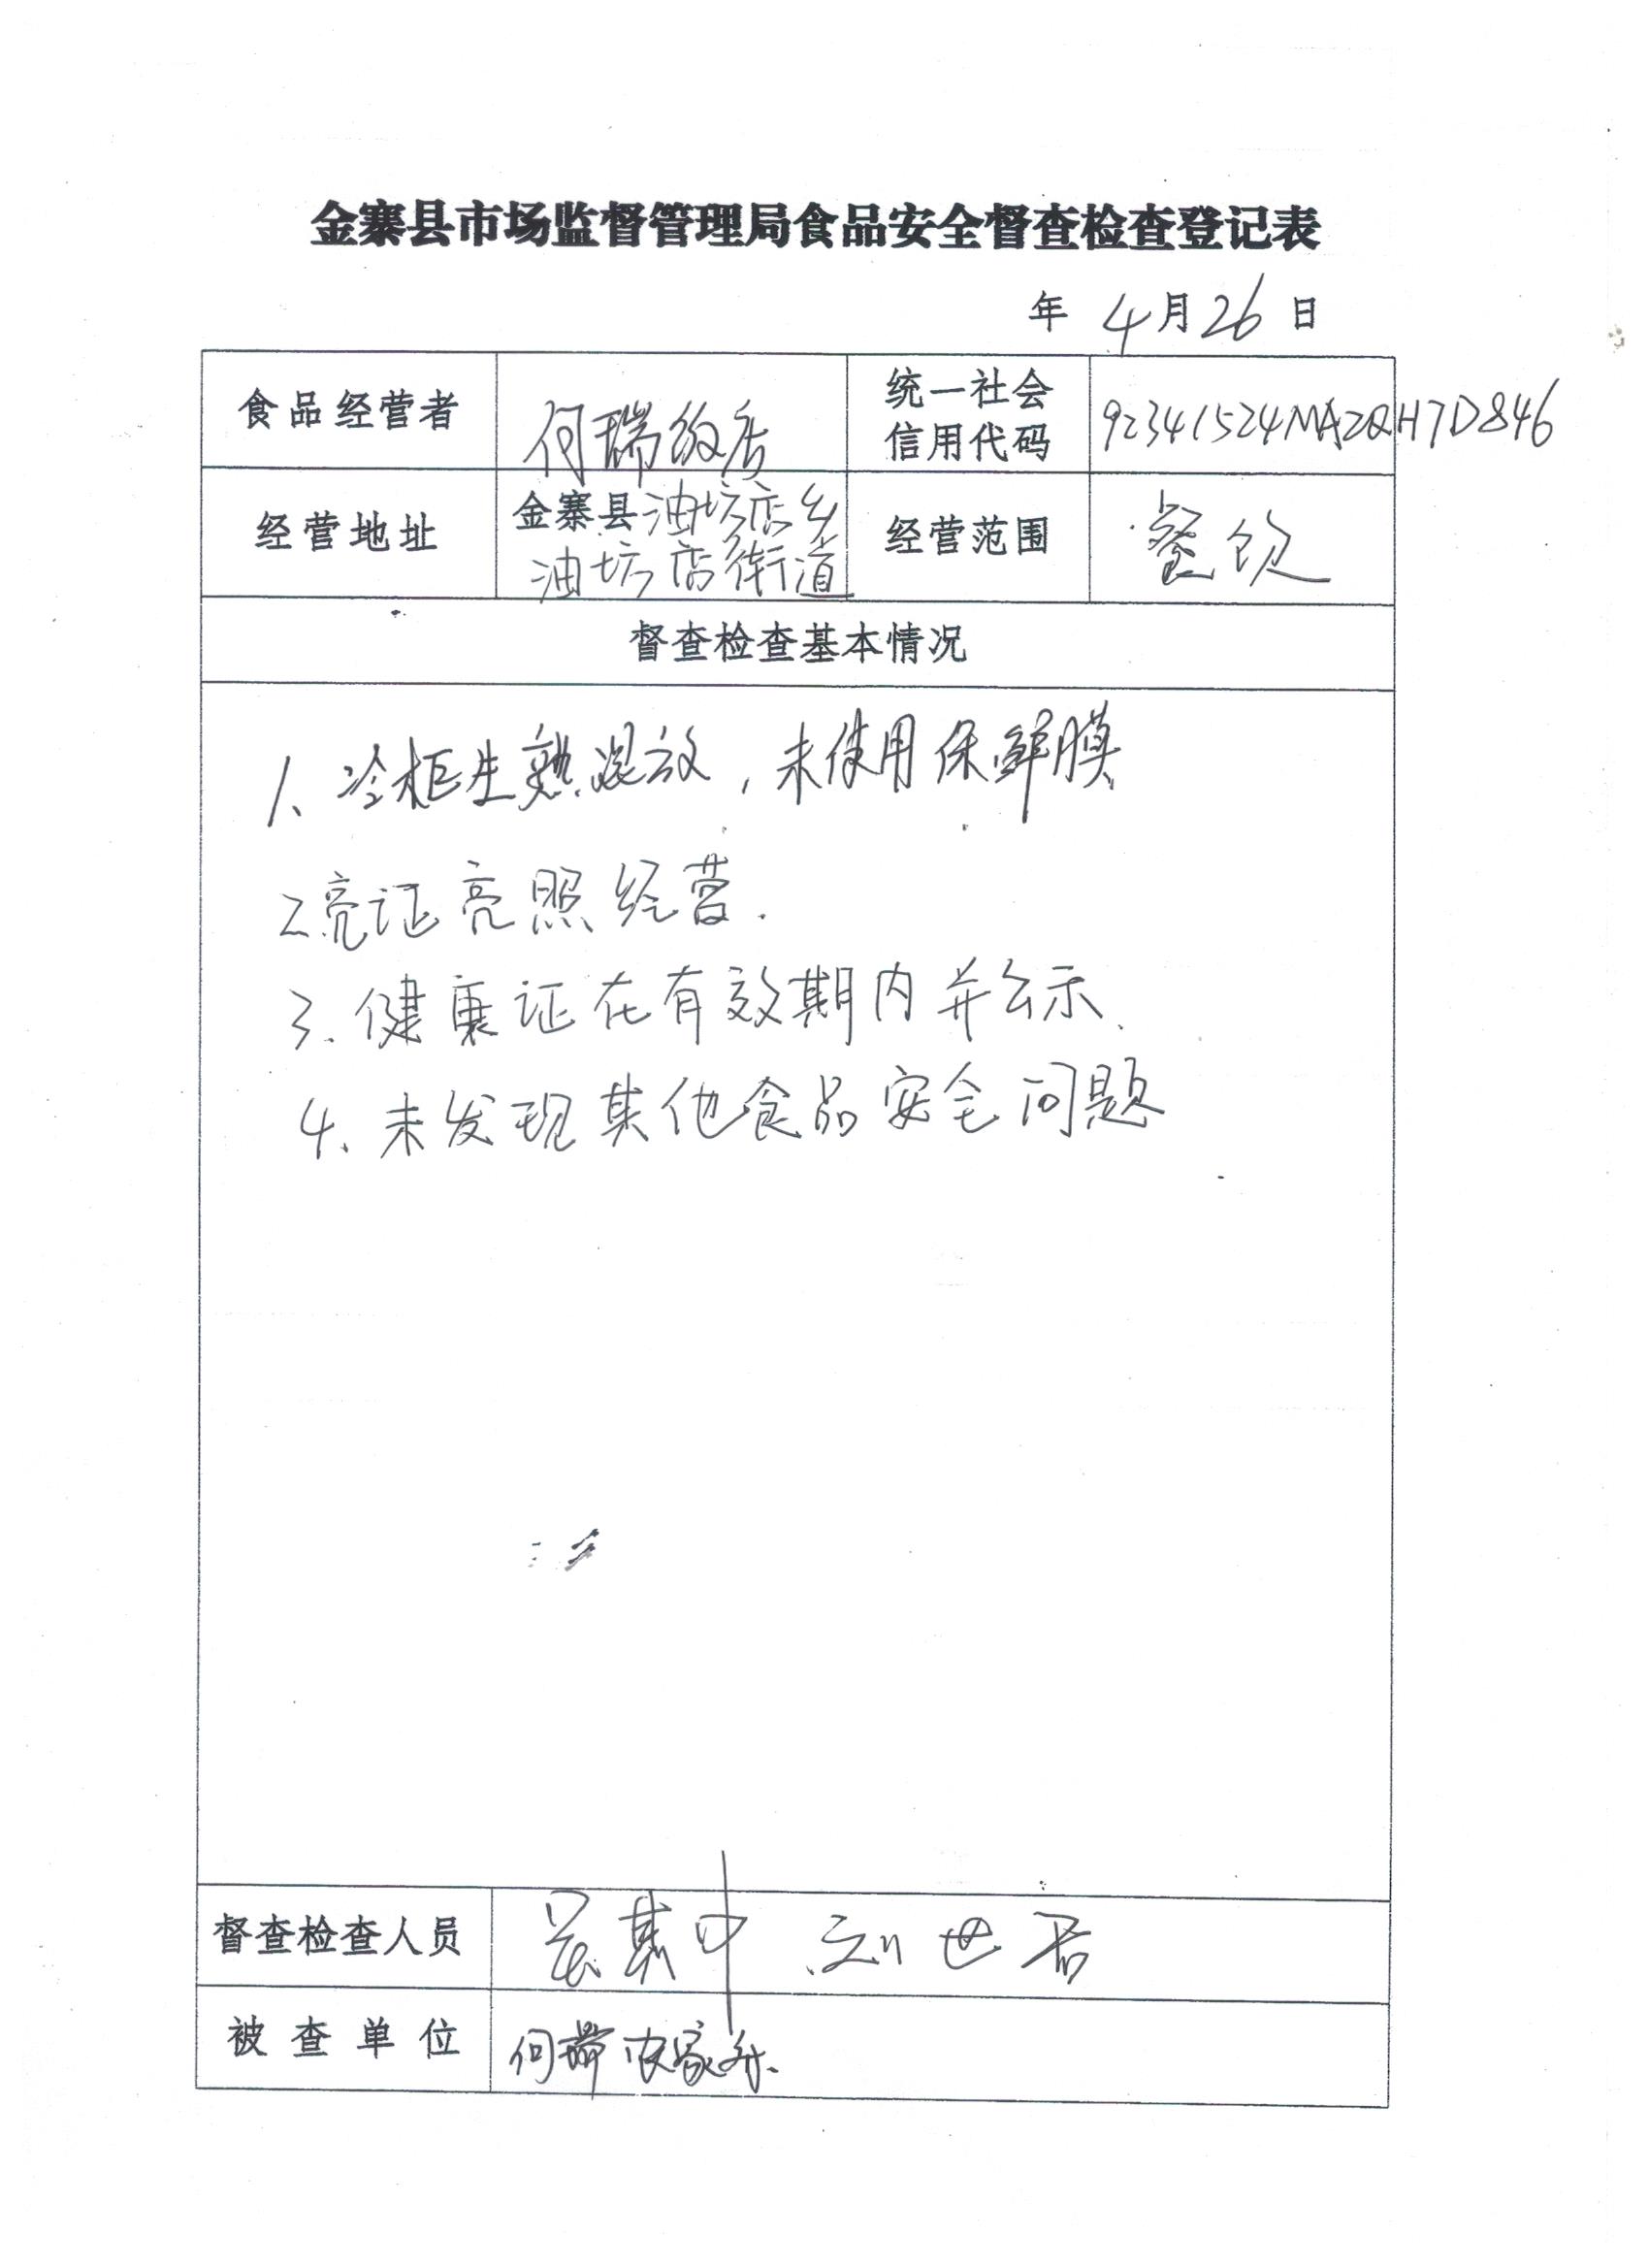 金寨县市场监督管理局食品安全督查检查登记表
年 4月26日
食品经营者
何瑞饭店
统一社会
信用代码
92341524MA2RH7D846
经营地址
金寨县油坊店乡
油坊店街道
经营范围
餐饮
督查检查基本情况
1、冷柜生熟混放，未使用保鲜膜
2.亮证亮照经营.
3.健康证在有效期内并公示、
4、未发现其他食品安全问题
督查检查人员
吴其中 刘世君
被查单位
何瑞农家乐